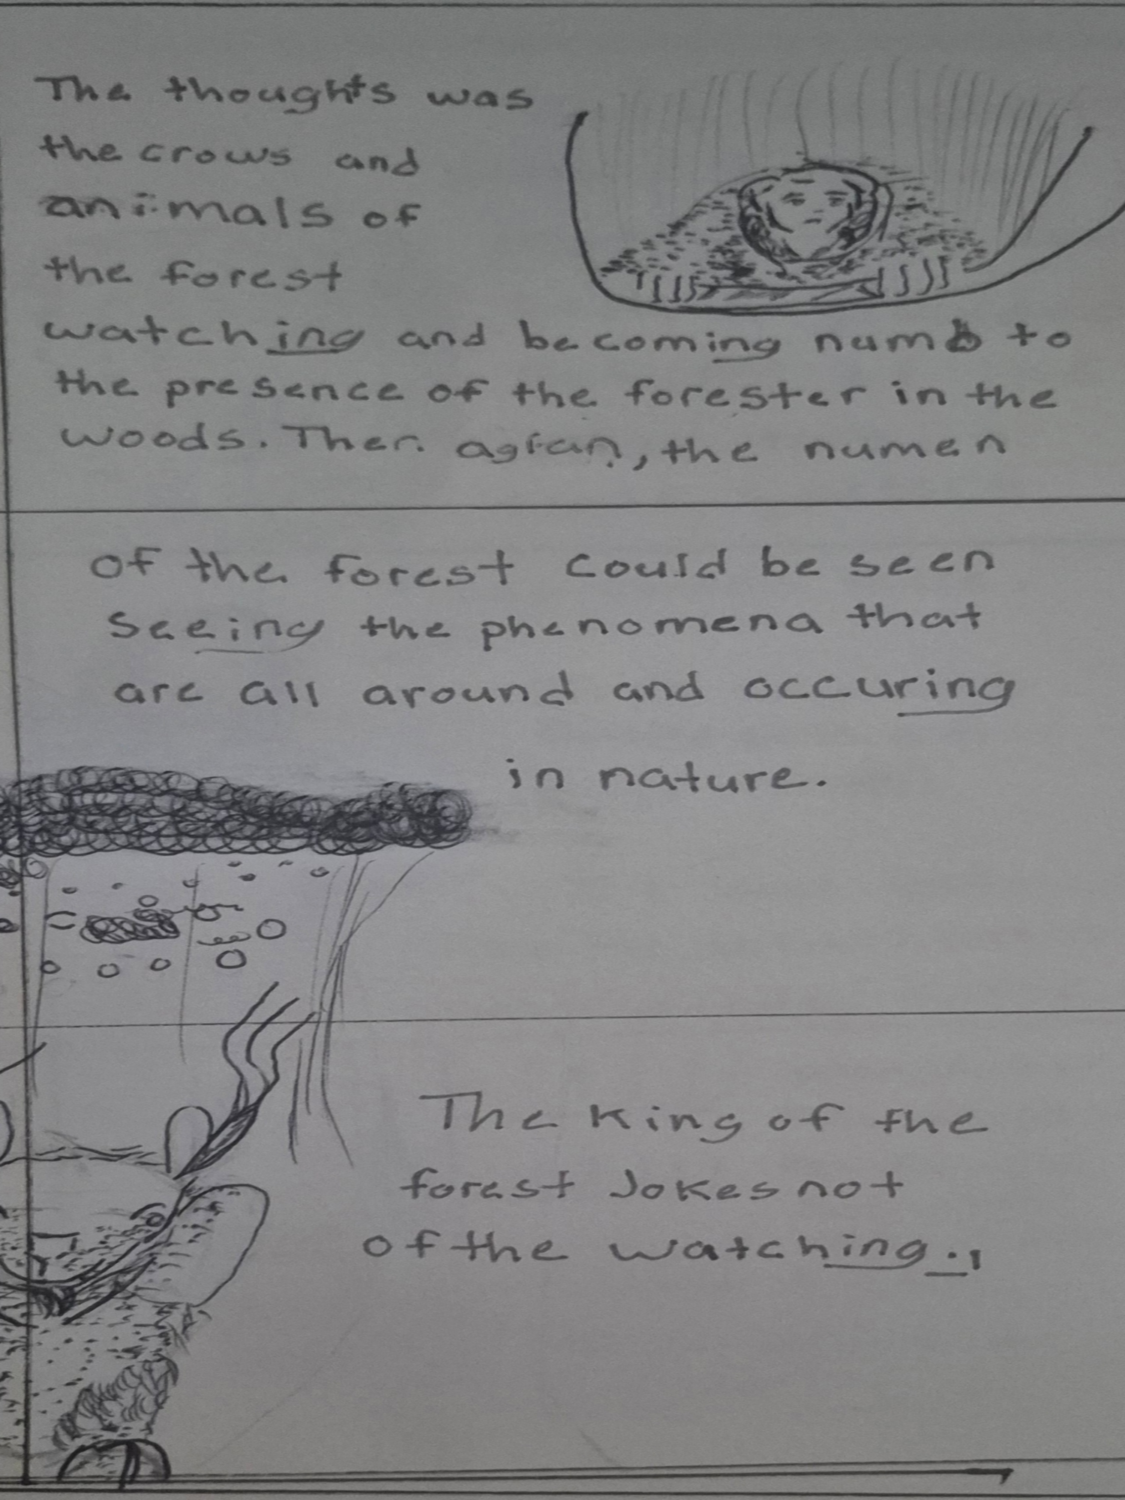 The thoughts was
the crows and
animals of
the forest
watching and becoming numb to
the presence of the forester in the
woods. Then agian, the numen
of the forest could be seen
seeing the phenomena that
are all around and occuring
in nature.
The King of the
forest Jokes not
of the watching.